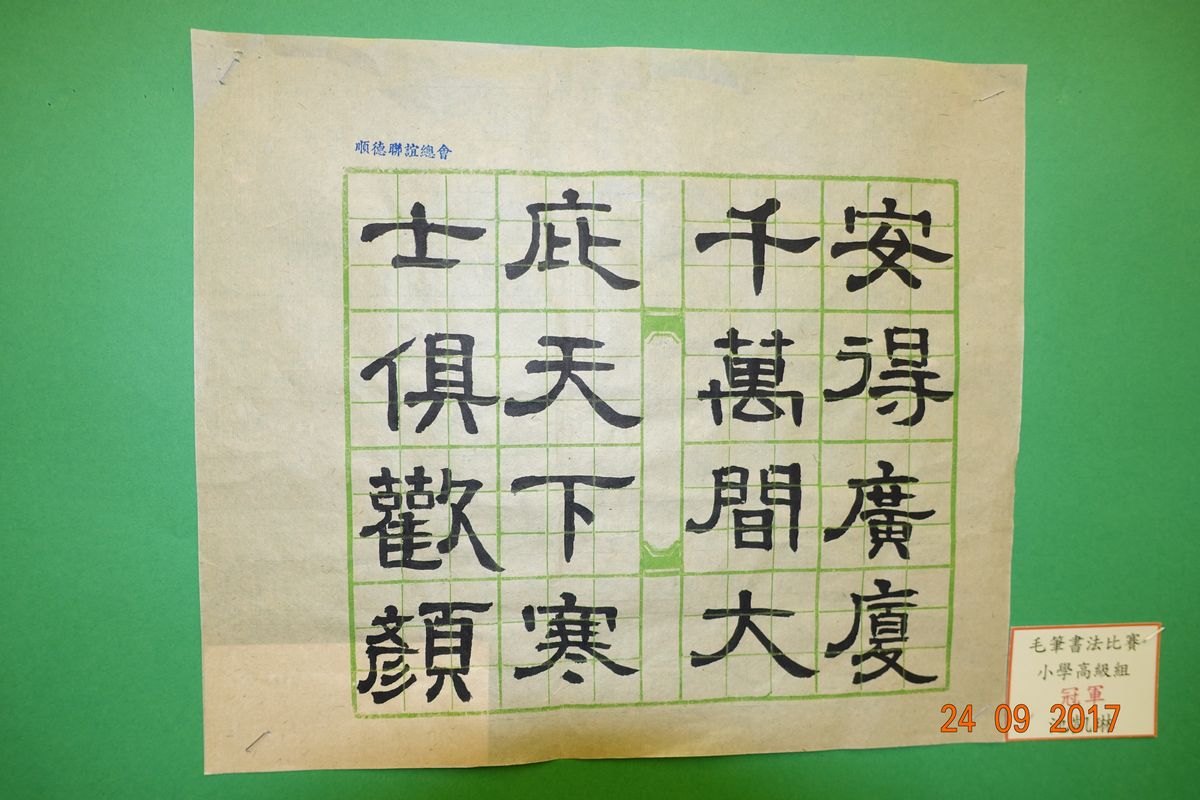 順德聯誼總會
安得廣廈
千萬間大
庇天下寒
士俱歡顏
毛筆書法比賽
小學高級組
冠軍
琳
24 09 2017